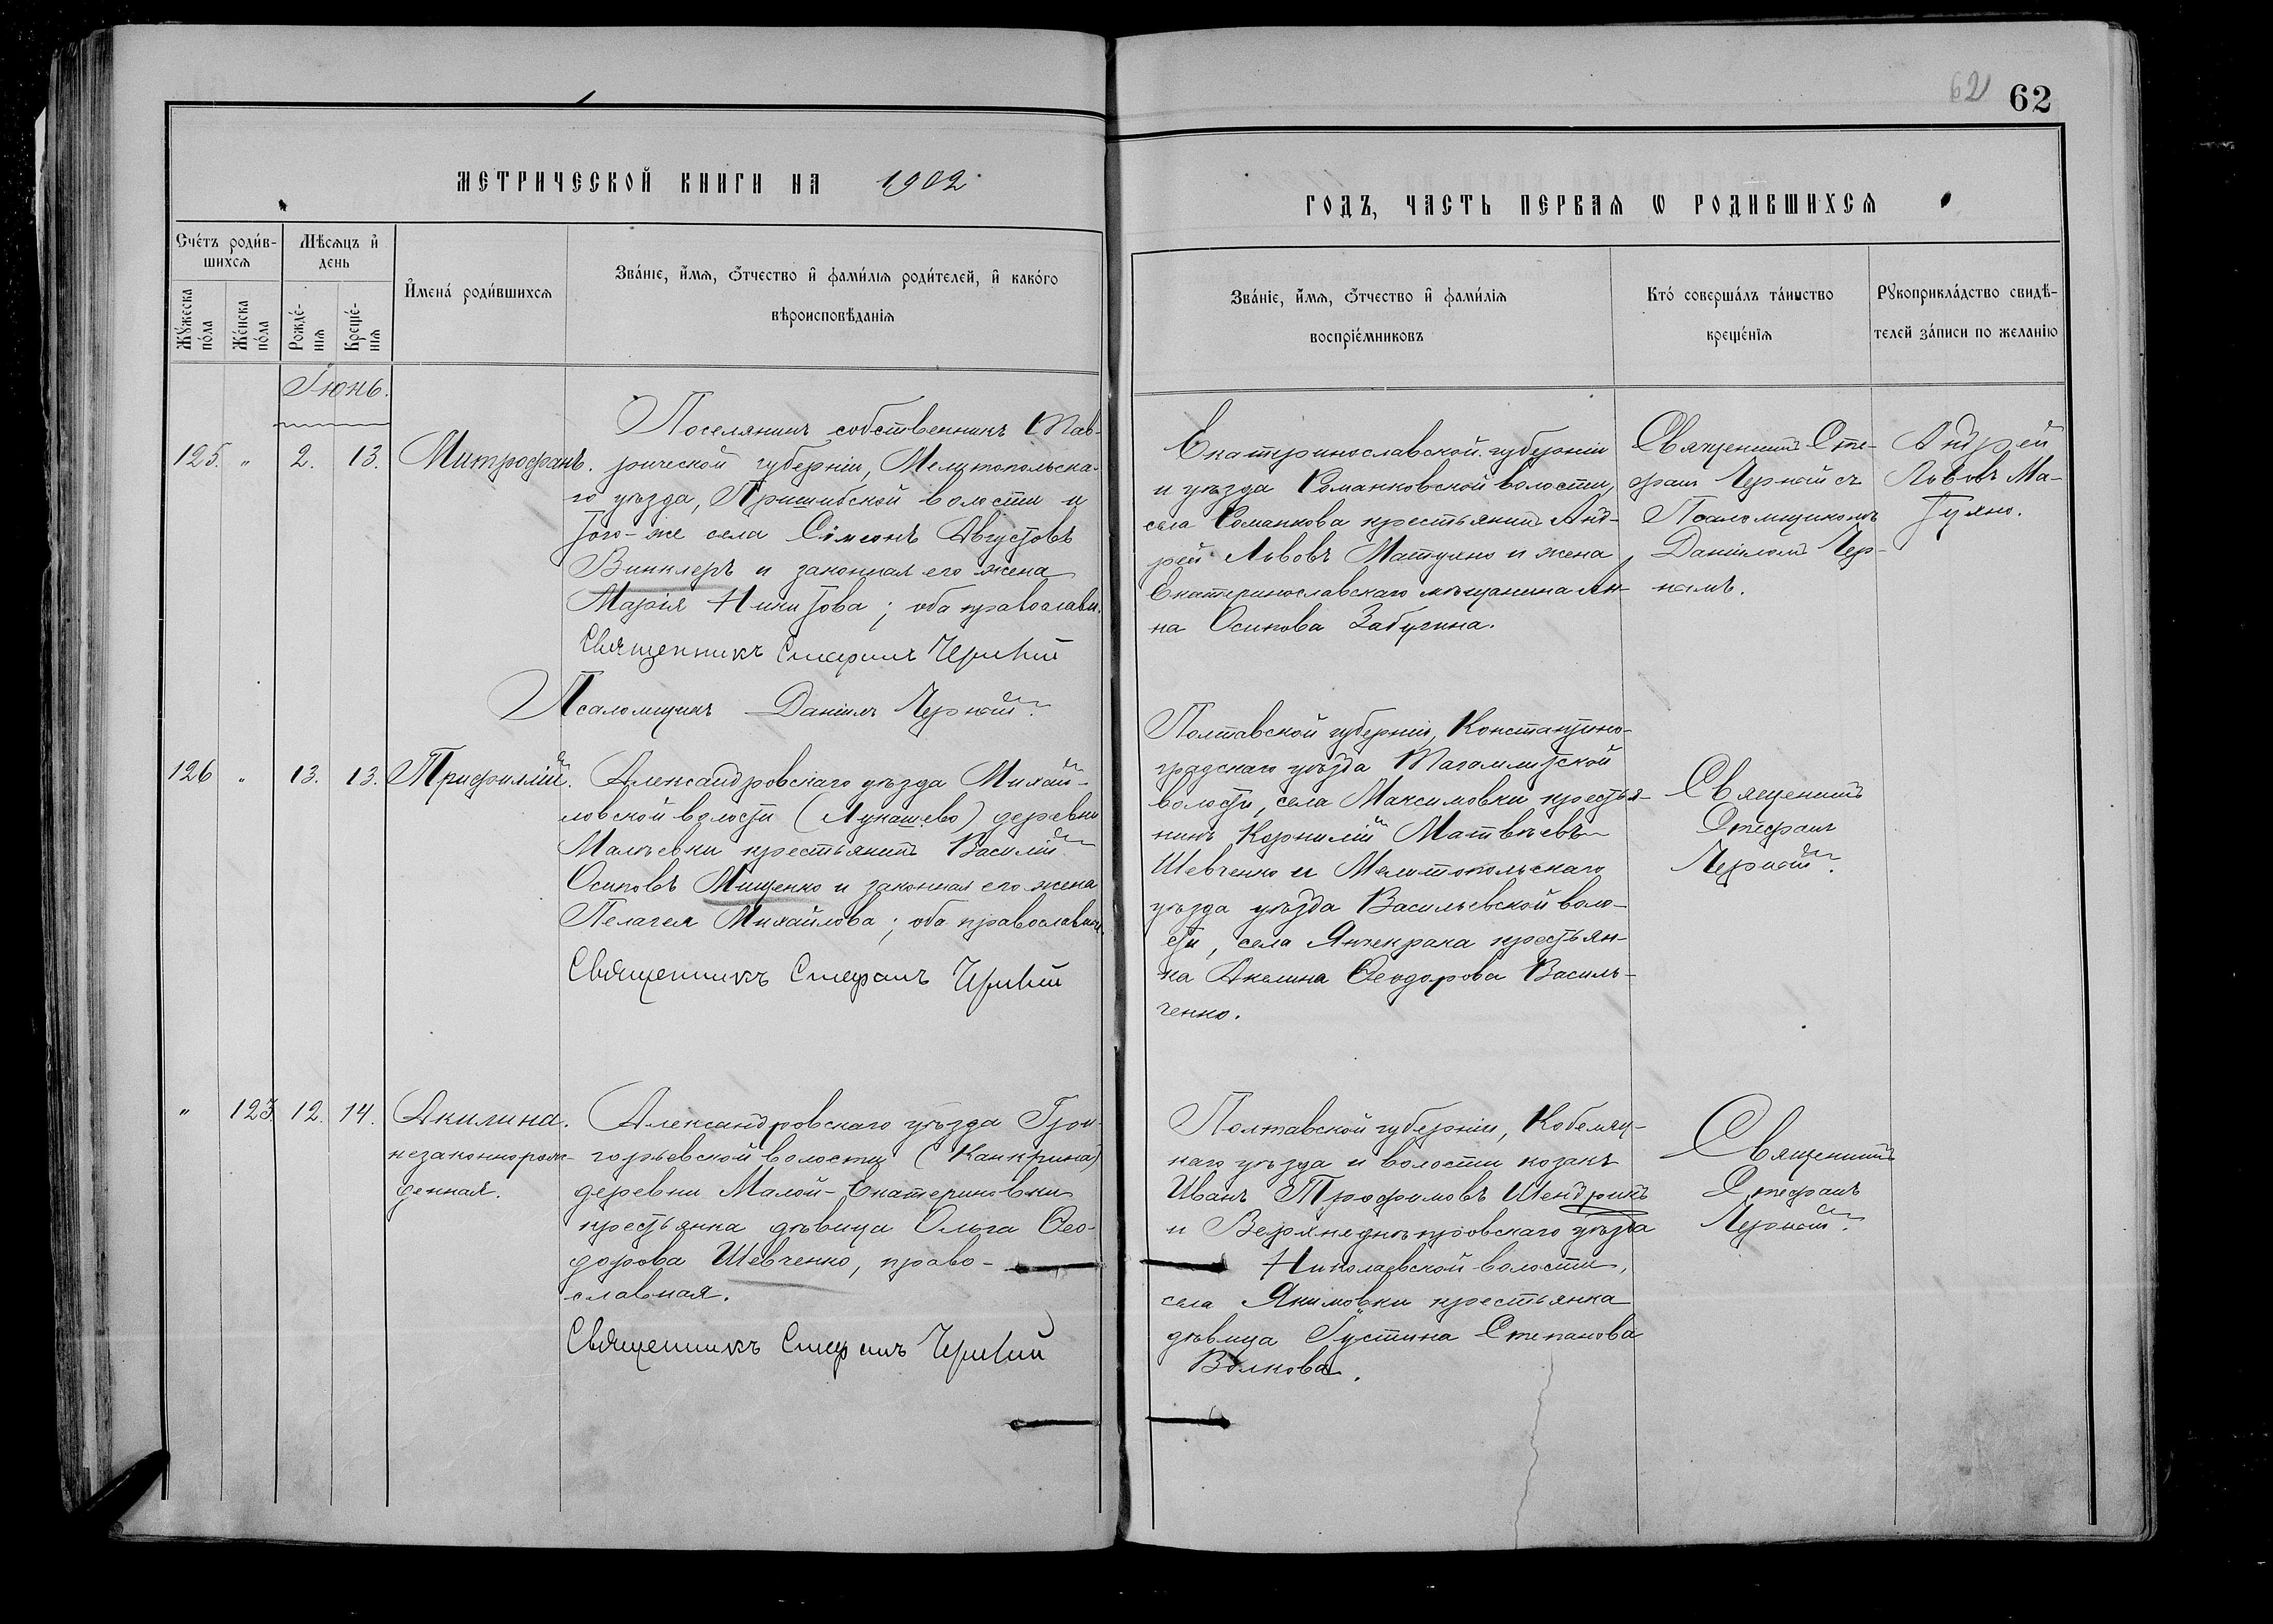 62
62
МЕТРИЧЕСКОЙ КНИГИ НА 1902
ГОДЪ, ЧАСТЬ ПЕРВАѦ Ѡ РОДИВШИХСѦ
Счéтъ роди́в-
шихсѧ
Мѣсѧцъ и҆
день
Мꙋ́жеска
по́ла
Же́нска
по́ла
Рожде́-
нїѧ
Креще́-
нїѧ
И҆мена́ роди́вшихсѧ
Зва́нїе, и҆́мѧ, ѻ҆́тчество и҆ фами́лїѧ роди́телей, и҆ како́го
вѣроисповѣ́данїѧ
Зва́нїе, и҆́мѧ, ѻ҆́тчество и҆ фами́лїѧ
воспрїе́мниковъ
Кто́ соверша́лъ та́инство
креще́нїѧ
Рꙋкоприкла́дство свидѣ́-
телей за́писи по жела́нїю
Іюнь.
125. " 2. 13. Митрофанъ.
Поселянинъ собственникъ Тав-
рической губерніи, Мелитопольска-
го уѣзда, Пришибской волости и
того-же села Сімеонъ Августовъ
Винклеръ и законная его жена
Марія Никитова; оба православн.
Священникъ Стефанъ Черный
Псаломщикъ Даніилъ Черный.
Екатеринославской губерніи
и уѣзда Романковской волости,
села Романкова крестьянинъ Анд-
рей Львовъ Матуяно и жена
Екатеринославскаго мѣщанина Ан-
на Осипова Забугина.
Священникъ Сте-
фанъ Черный съ
Псаломщикомъ
Даніиломъ Чер-
нымъ.
Андрей
Львовъ Ма-
туяно.
126 " 13. 13. Трифиллій.
Александровскаго уѣзда Михай-
ловской волости (Лукашево) деревни
Малѣевки крестьянинъ Василій
Осиповъ Мищенко и законная его жена
Пелагея Михайлова; оба православные.
Священникъ Стефанъ Черный
Полтавской губерніи, Константино-
градскаго уѣзда Магомлитской
волости, села Максимовки крестья-
нинъ Корнилій Матвѣевъ
Шевченко и Мелитопольскаго
уѣзда уѣзда Васильевской воло-
сти, села Янчекрака крестьян-
ка Акилина Ѳеодорова Василь-
ченко.
Священникъ
Стефанъ
Черный.
" 123. 12. 14. Акилина.
незаконнорож-
денная.
Александровскаго уѣзда Гри-
горьевской волости (Канкрина)
деревни Малой-Екатериновки
крестьянка дѣвица Ольга Ѳео-
дорова Шевченко, право-
славная.
Священникъ Стефанъ Черный
Полтавской губерніи, Кобеляц-
каго уѣзда и волости козакъ
Иванъ Трофимовъ Шендрикъ
и Верхнеднѣпровскаго уѣзда
Николаевской волости,
села Якимовки крестьянка
дѣвица Іустина Степанова
Волкова.
Священникъ
Стефанъ
Черный.